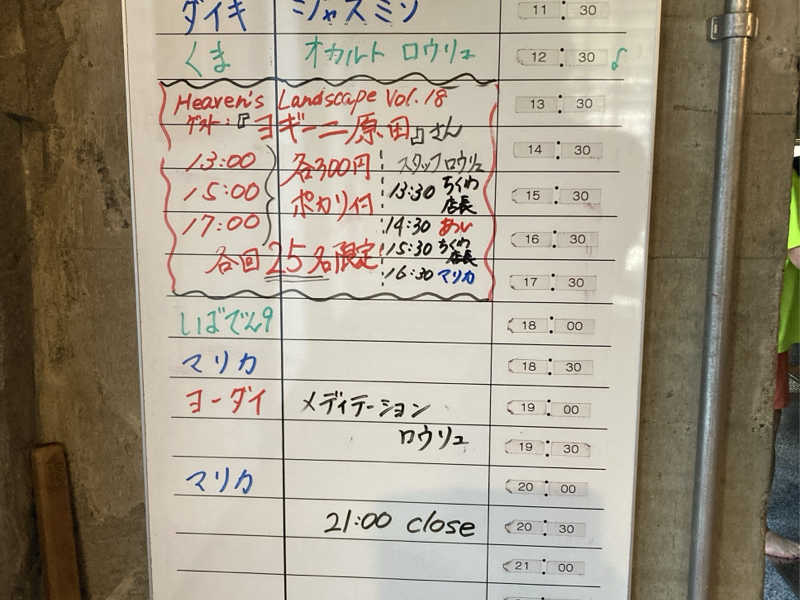 ダイキ ジャスミン 11:30
くま オカルト ロウリュ 12:30 ♪
Heaven's Landscape Vol.18 13:30
ゲスト:『ヨギーニ原田』さん
14:30
13:00 各300円 スタッフロウリュ
15:00 ポカリ付 13:30 ちくわ店長 15:30
17:00 14:30 あつい
各回25名限定 15:30 ちくわ店長 16:30
16:30 マリカ 17:30
いばでん9 18:00
マリカ 18:30
ヨーダイ メディテーション 19:00
ロウリュ 19:30
マリカ 20:00
21:00 close 20:30
21:00